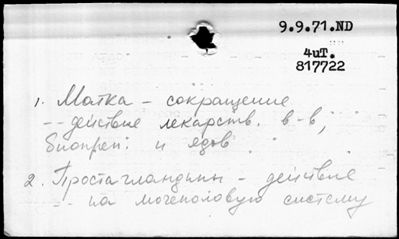 9.9.71.ND
4иТ.
817722
1. Матка - сокращение
-- действие лекарств. в-в,
биопреп. и ядов
2. Простагландины - действие
-- на мочеполовую систему